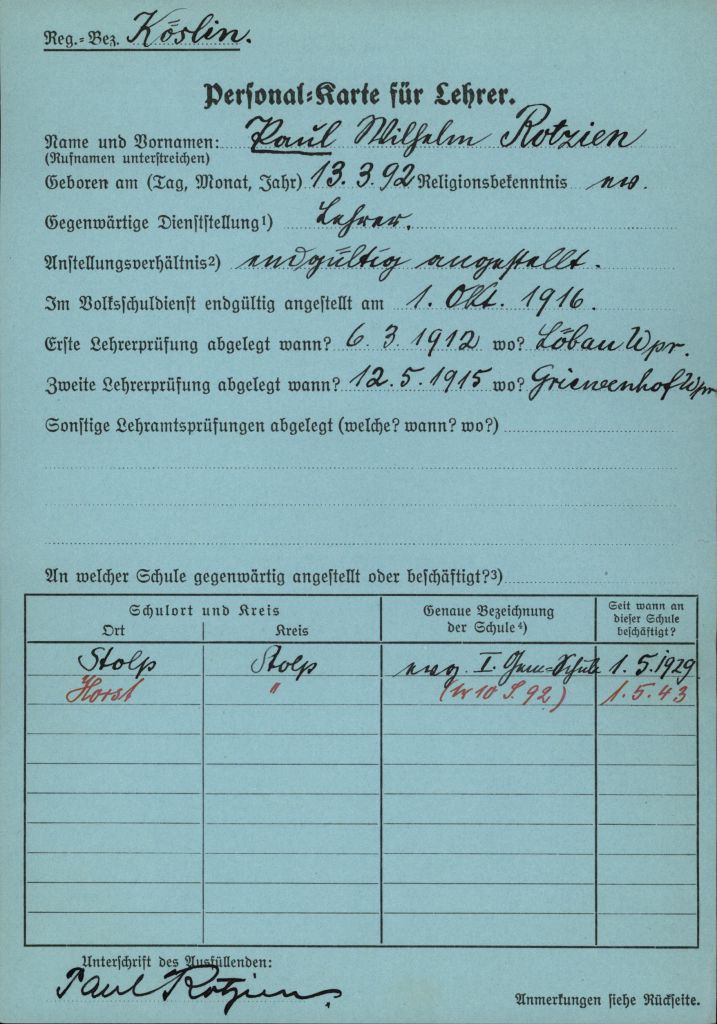 Reg.-Bez. Köslin.
Personal-Karte für Lehrer.
Name und Vornamen: Paul Wilhelm Rotzien
(Rufnamen unterstreichen)
Geboren am (Tag, Monat, Jahr) 13. 3. 92 Religionsbekenntnis ev.
Gegenwärtige Dienststellung¹) Lehrer.
Anstellungsverhältnis²) endgültig angestellt.
Im Volksschuldienst endgültig angestellt am 1. Okt. 1916.
Erste Lehrerprüfung abgelegt wann? 6. 3. 1912 wo? Löbau Wpr.
Zweite Lehrerprüfung abgelegt wann? 12. 5. 1915 wo? Griewenhof Wpr
Sonstige Lehramtsprüfungen abgelegt (welche? wann? wo?)
An welcher Schule gegenwärtig angestellt oder beschäftigt?³)
Schulort und Kreis
Ort Kreis
Genaue Bezeichnung
der Schule⁴)
Seit wann an
dieser Schule
beschäftigt?
Stolp Stolp evg. I. Gem=Schule 1. 5. 1929
Horst " 1. 5. 43
Unterschrift des Ausfüllenden:
Paul Rotzien.
Anmerkungen siehe Rückseite.